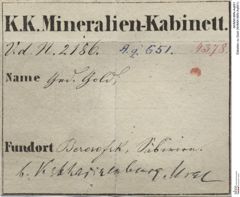 K.K. Mineralien-Kabinett.
V.d. N. 2186. A.q. 651. 4378.
Name Ged. Gold,
Fundort Beresofsk, Sibirien.
b. Katharinenburg, Ural